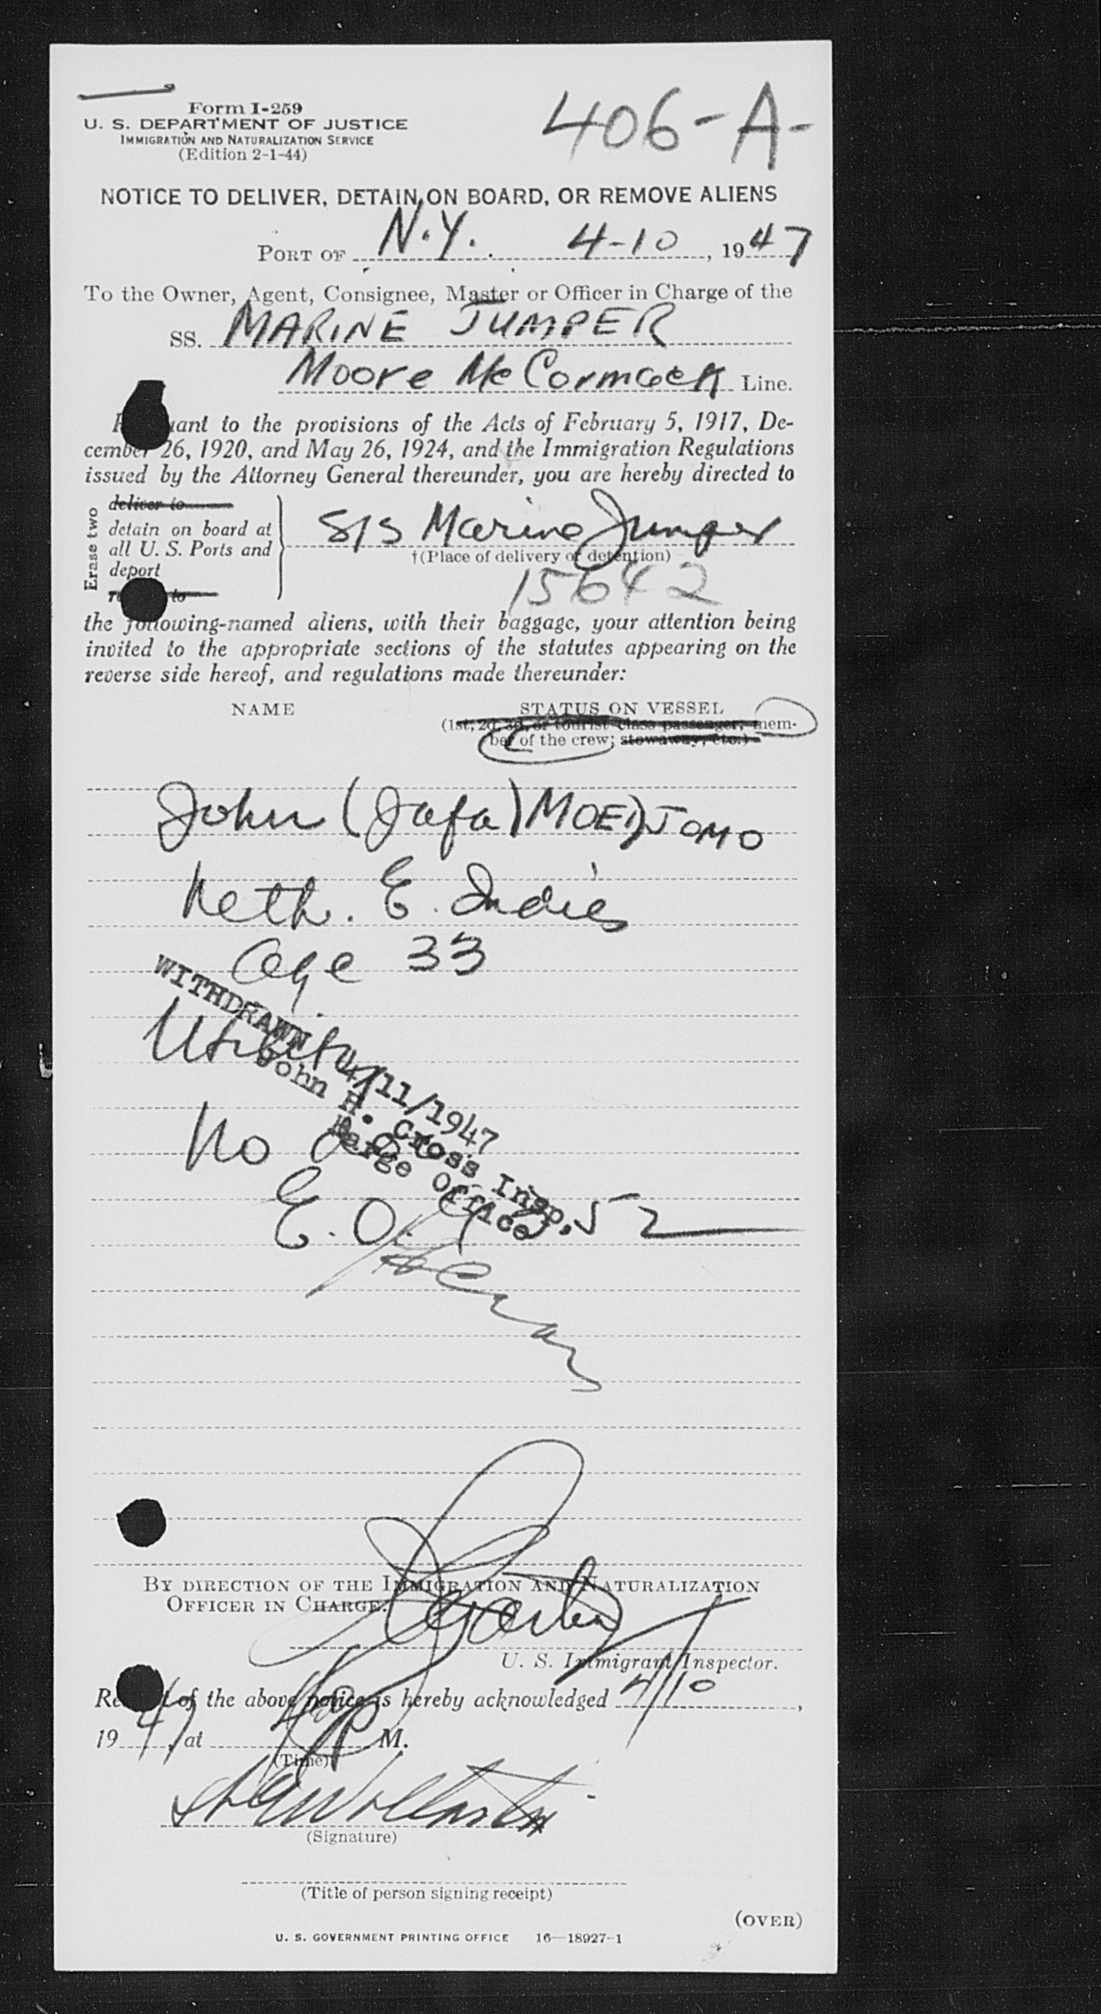 Form I-259
U. S. DEPARTMENT OF JUSTICE
IMMIGRATION AND NATURALIZATION SERVICE
(Edition 2-1-44)
406-A-
NOTICE TO DELIVER, DETAIN ON BOARD, OR REMOVE ALIENS
PORT OF N.Y. 4-10, 1947
To the Owner, Agent, Consignee, Master or Officer in Charge of the
SS. MARINE JUMPER
Moore McCormack Line.
ant to the provisions of the Acts of February 5, 1917, De-
cember 26, 1920, and May 26, 1924, and the Immigration Regulations
issued by the Attorney General thereunder, you are hereby directed to
Erase two
deliver to
detain on board at
all U. S. Ports and
deport
to
S/S Marine Jumper
†(Place of delivery or detention)
15642
the following-named aliens, with their baggage, your attention being
invited to the appropriate sections of the statutes appearing on the
reverse side hereof, and regulations made thereunder:
NAME STATUS ON VESSEL
(1st, 2d, 3d, or tourist class passenger; mem-
ber of the crew; stowaway, etc.)
John (Jafa) MOEDJOMO
Neth. E. Indies
Age 33
Utility
WITHDRAWN 4/11/1947
John H. Cross Insp.
Barge Office
No
E. O. 52
BY DIRECTION OF THE IMMIGRATION AND NATURALIZATION
OFFICER IN CHARGE.
U. S. Immigrant Inspector.
of the above notice is hereby acknowledged 4/10,
1947, at P M.
(Time)
(Signature)
(Title of person signing receipt)
(OVER)
U. S. GOVERNMENT PRINTING OFFICE 16—18927-1